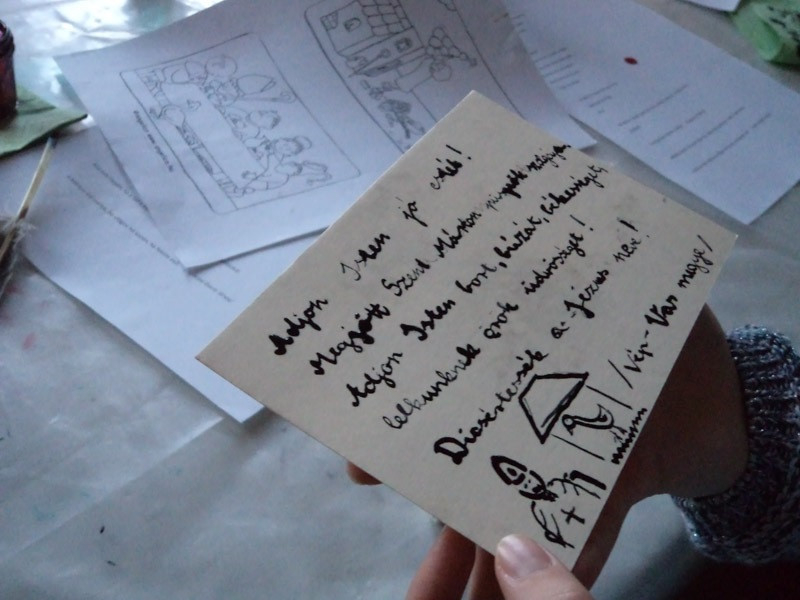 Adjon Isten jó estét!
Megjött Szent Márton püspök
Adjon Isten bort, búzát, békességet,
lelkünknek örök üdvösséget!
Dicsértessék a Jézus neve!
/Vép-Vas megye/